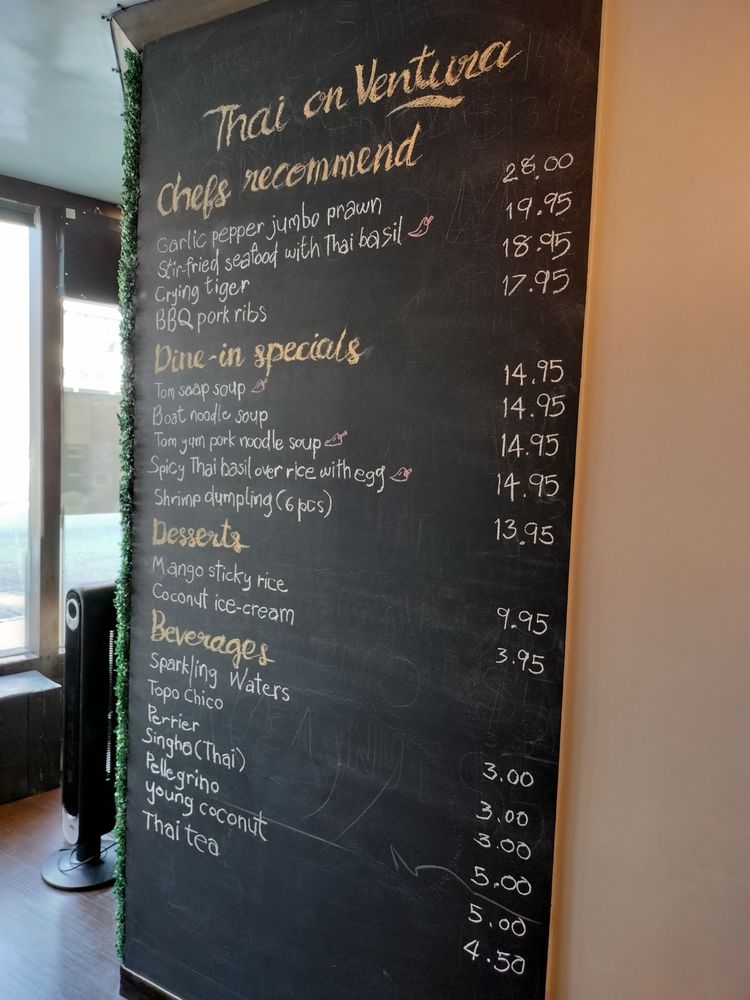 Thai on Ventura
Chefs recommend
Garlic pepper jumbo prawn 28.00
Stir-fried seafood with Thai basil 19.95
Crying tiger 18.95
BBQ pork ribs 17.95
Dine-in specials
Tom saap soup 14.95
Boat noodle soup 14.95
Tom yum pork noodle soup 14.95
Spicy Thai basil over rice with egg 14.95
Shrimp dumpling (6 pcs) 13.95
Desserts
Mango sticky rice 9.95
Coconut ice-cream 3.95
Beverages
Sparkling Waters
Topo Chico 3.00
Perrier 3.00
Singha (Thai) 3.00
Pellegrino 5.00
young coconut 5.00
Thai tea 4.50